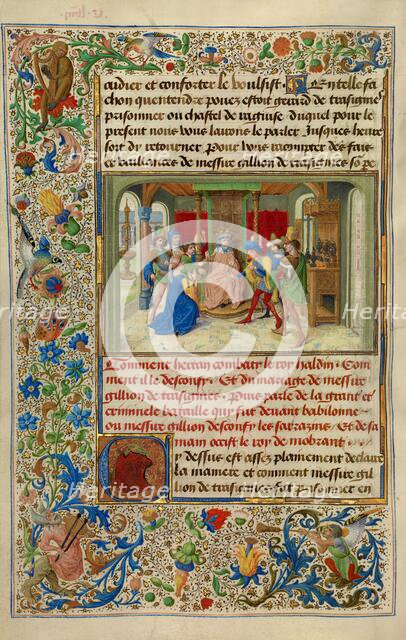 aidier et conforter le voulsist. En telle fa
chon quentendre pouez estoit gerard de trasignies
prisonner ou chastel de raguse duquel pour le
present nous vous lairons le parler Jusques heure
soit du retourner Pour vous racompter des fais
et vaillances de messire gillion de trasignies so pe
Comment hertan combati le roy haldin. Com
ment il le desconfi. Et du mariage de messire
gillion de trasignies. Puis parle de la grant et
criminele bataille quy fut devant babilonne
ou messire gillion desconfi les sarrazins. Et de sa
main occist le roy de mobrant
Cy dessus est assez plainement declaire
la maniere et comment messire gil
lion de trasignies fut prisonnier en